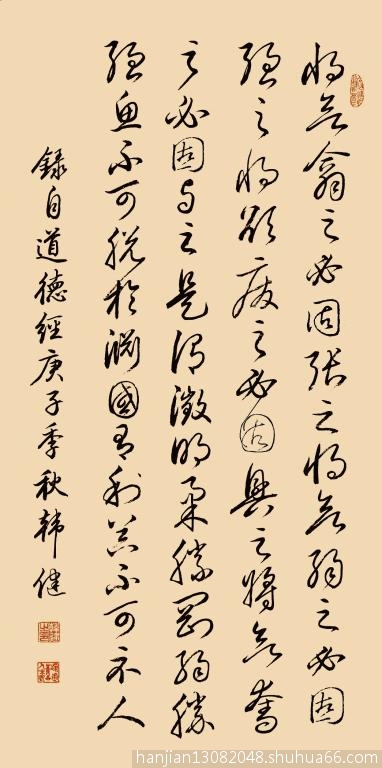 将欲翕之必固张之将欲弱之必固
強之将欲廢之必固興之將欲奪
之必固与之是谓微明柔勝剛弱勝
強魚不可脱於渊國利器不可示人
錄自道德經庚子季秋韩健
hanjian13082048.shuhua66.com